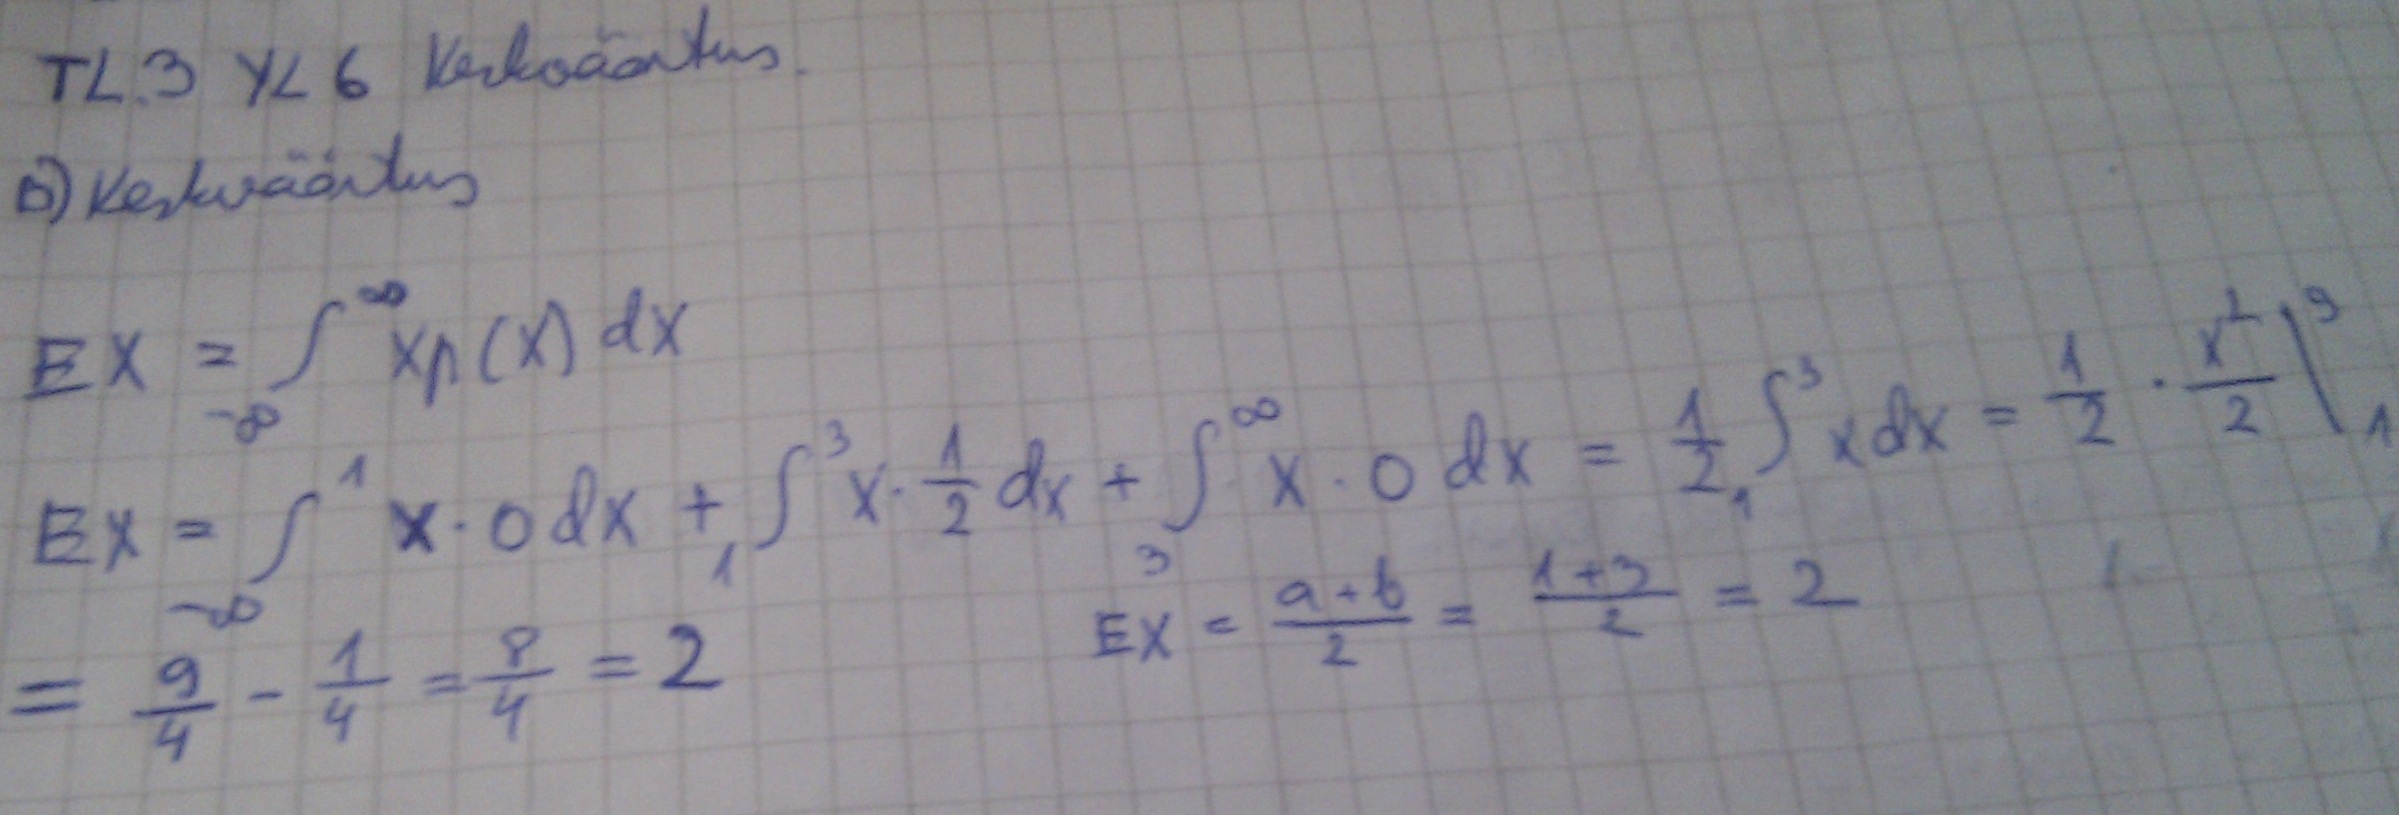 TL.3 YL 6 Keskväärtus.
b) Keskväärtus
EX = ∫_{-∞}^{∞} xp(x) dx
EX = ∫_{-∞}^{1} x · 0 dx + ∫_{1}^{3} x · 1/2 dx + ∫_{3}^{∞} x · 0 dx = 1/2 ∫_{1}^{3} x dx = 1/2 · x²/2 |_{1}^{3}
= 9/4 - 1/4 = 8/4 = 2
EX = (a+b)/2 = (1+3)/2 = 2